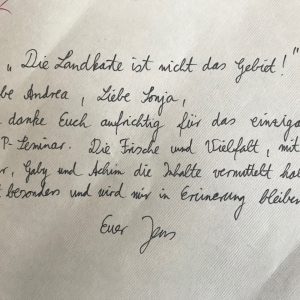 „Die Landkarte ist nicht das Gebiet!"
be Andrea, Liebe Sonja,
danke Euch aufrichtig für das einziga
P-Seminar. Die Frische und Vielfalt, mit
r, Gaby und Achim die Inhalte vermittelt ha
t besonders und wird mir in Erinnerung bleiben
Euer Jens